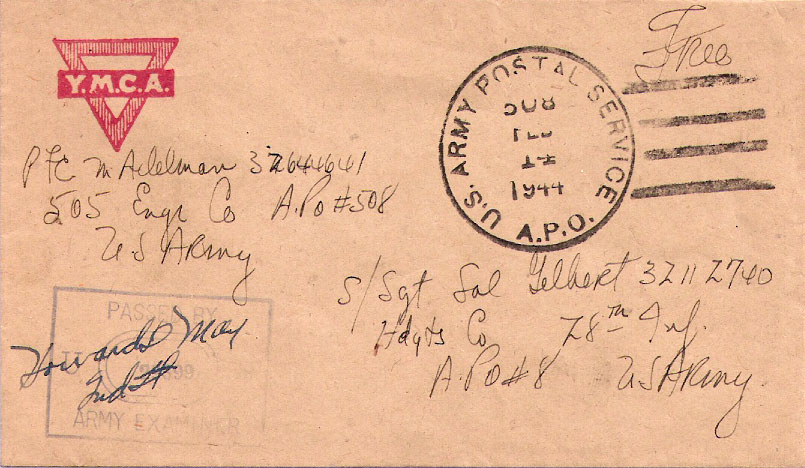 Y.M.C.A.
Free
U.S. ARMY POSTAL SERVICE
508
FEB
14
1944
A.P.O.
Pfc M Adelman 32644641
505 Engr Co A.P.O #508
US Army
S/Sgt Sol Gelbert 32112740
Hdqts Co 28th Inf.
A.P.O #8 US Army.
PASSED BY
U
Howard May
2nd Lt
ARMY EXAMINER